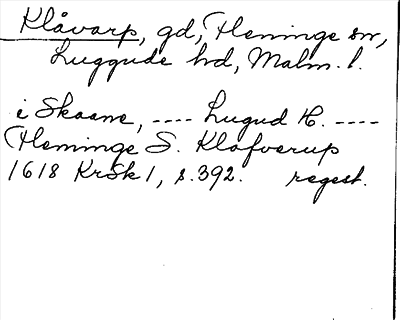 Klåvarp, gd, Fleninge sn,
Luggude hd, Malm. l.
i Skaane, ---- Lugud H. ----
Fleninge S. Klafverup
1618 KrSk 1, s. 392. regest.